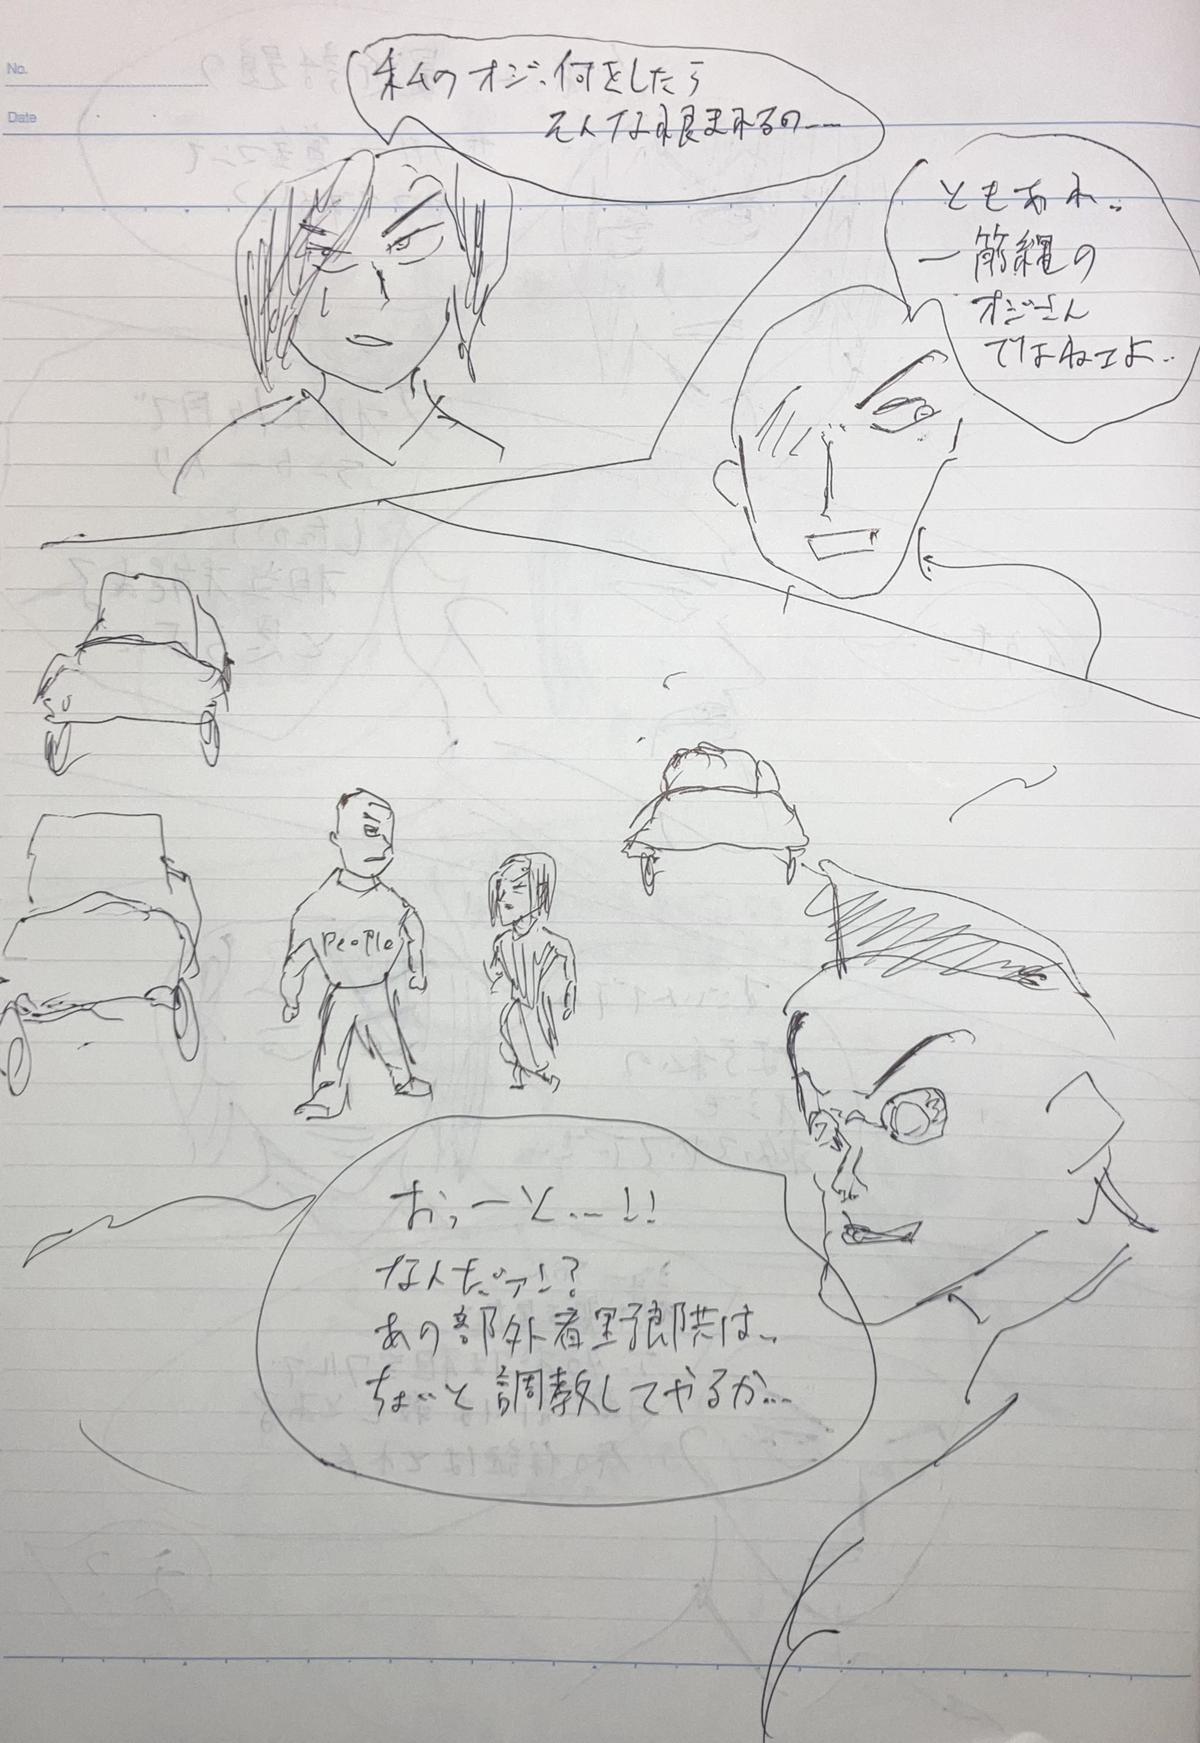 No.
Date
私のオジ、何をしたら
そんな恨まれるの…
ともあれ…
一筋縄の
オジさん
ではねェよ…
People
おぅーと…!!
なんだァ!?
あの部外者野郎共は…
ちょいと調教してやるか…